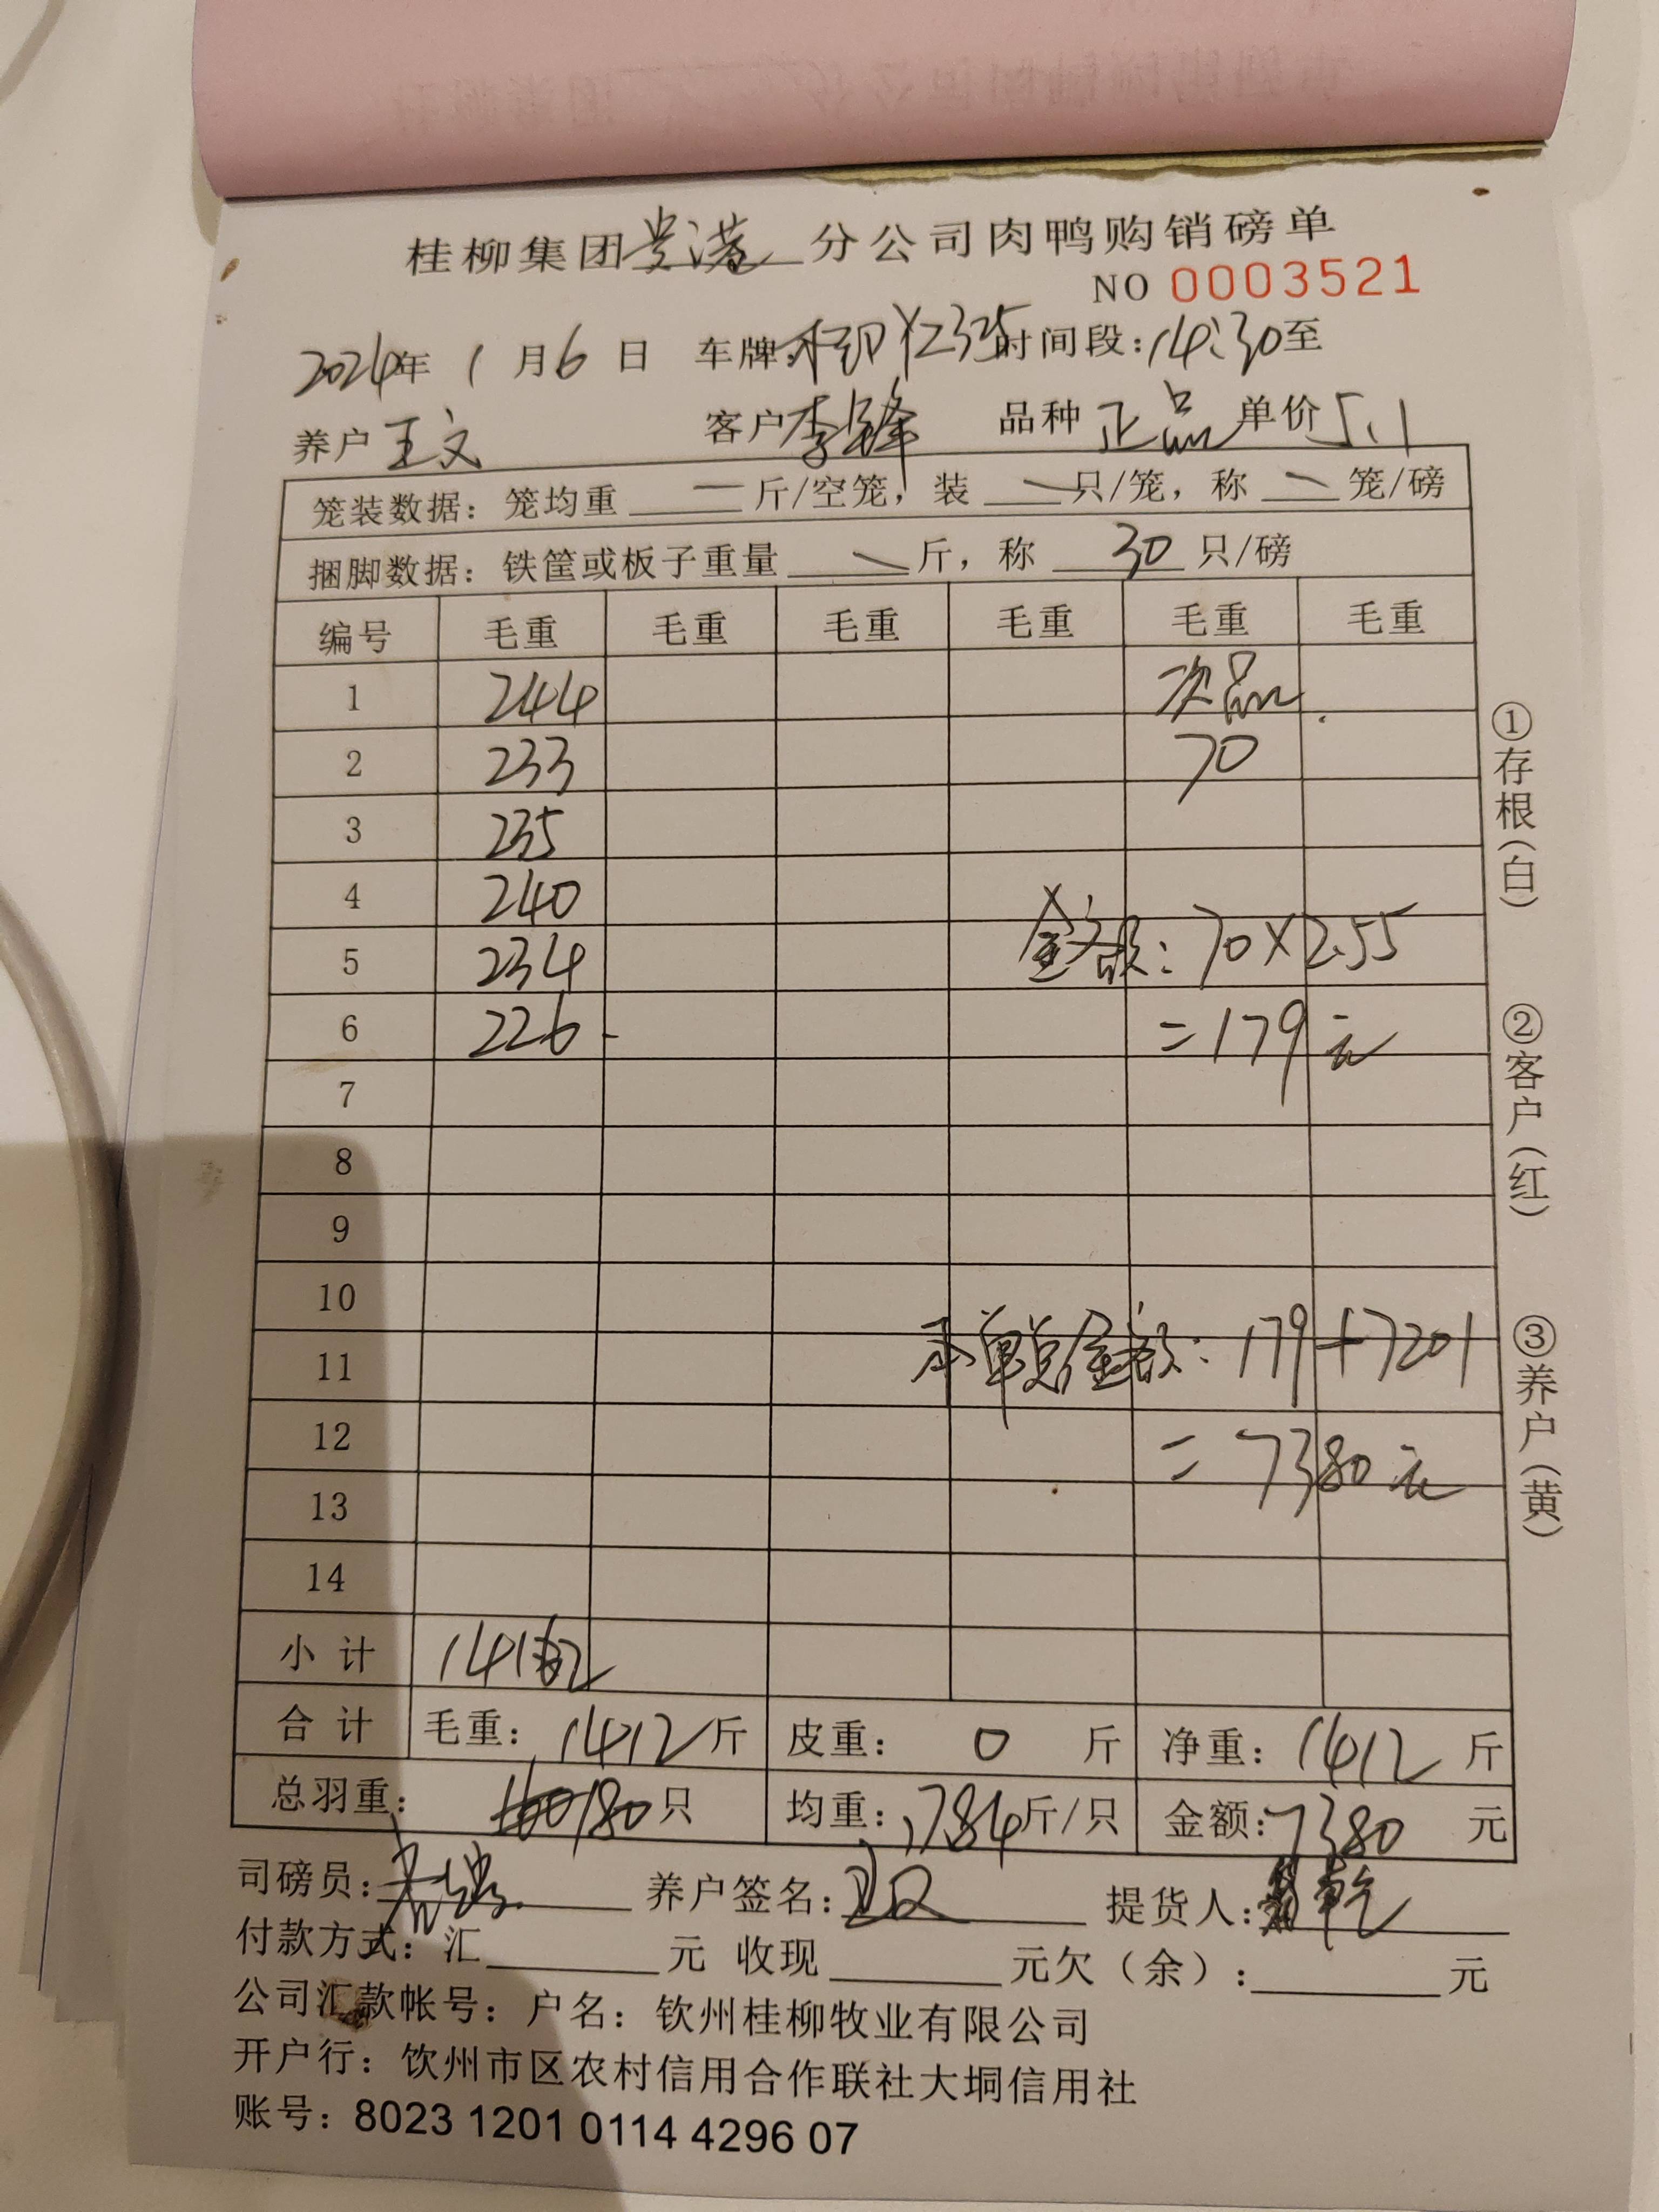 桂柳集团贵港分公司肉鸭购销磅单
NO 0003521
2024年 1月6日 车牌:Y2335 时间段:14:30至
养户 王文 客户 李锋 品种 正品 单价 5.1
笼装数据: 笼均重 — 斤/空笼, 装 — 只/笼, 称 — 笼/磅
捆脚数据: 铁筐或板子重量 — 斤, 称 30 只/磅
编号 毛重 毛重 毛重 毛重 毛重 毛重
1 244 次品
2 233 70
3 235
4 240
5 234 金额: 70×2.55
6 226 =179元
7
8
9
10
11 本单总金额: 179+7201
12 =7380元
13
14
小计 1412
合计 毛重: 1412斤 皮重: 0 斤 净重: 1412 斤
总羽重: 180只 均重: 7.84斤/只 金额: 7380 元
司磅员: 养户签名: 王文 提货人:
付款方式: 汇 元 收现 元欠(余): 元
公司汇款帐号: 户名: 钦州桂柳牧业有限公司
开户行: 钦州市区农村信用合作联社大垌信用社
账号: 8023 1201 0114 4296 07
①存根(白)
②客户(红)
③养户(黄)